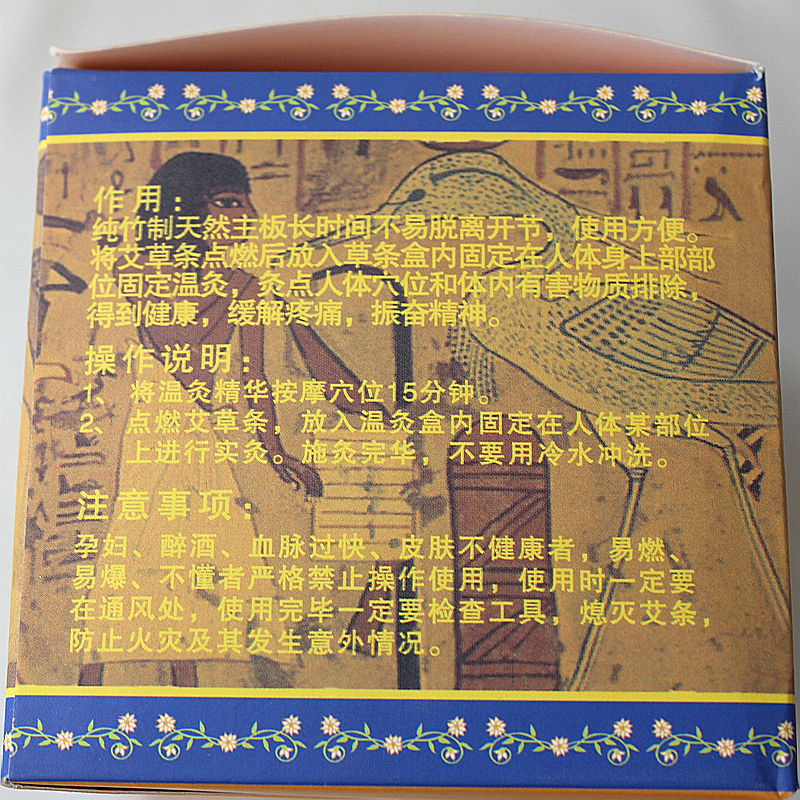 作用：
纯竹制天然主板长时间不易脱离开节，使用方便。
将艾草条点燃后放入草条盒内固定在人体身上部部
位固定温灸，灸点人体穴位和体内有害物质排除，
得到健康，缓解疼痛，振奋精神。
操作说明：
1、将温灸精华按摩穴位15分钟。
2、点燃艾草条，放入温灸盒内固定在人体某部位
上进行实灸。施灸完华，不要用冷水冲洗。
注意事项：
孕妇、醉酒、血脉过快、皮肤不健康者，易燃、
易爆、不懂者严格禁止操作使用，使用时一定要
在通风处，使用完毕一定要检查工具，熄灭艾条，
防止火灾及其发生意外情况。